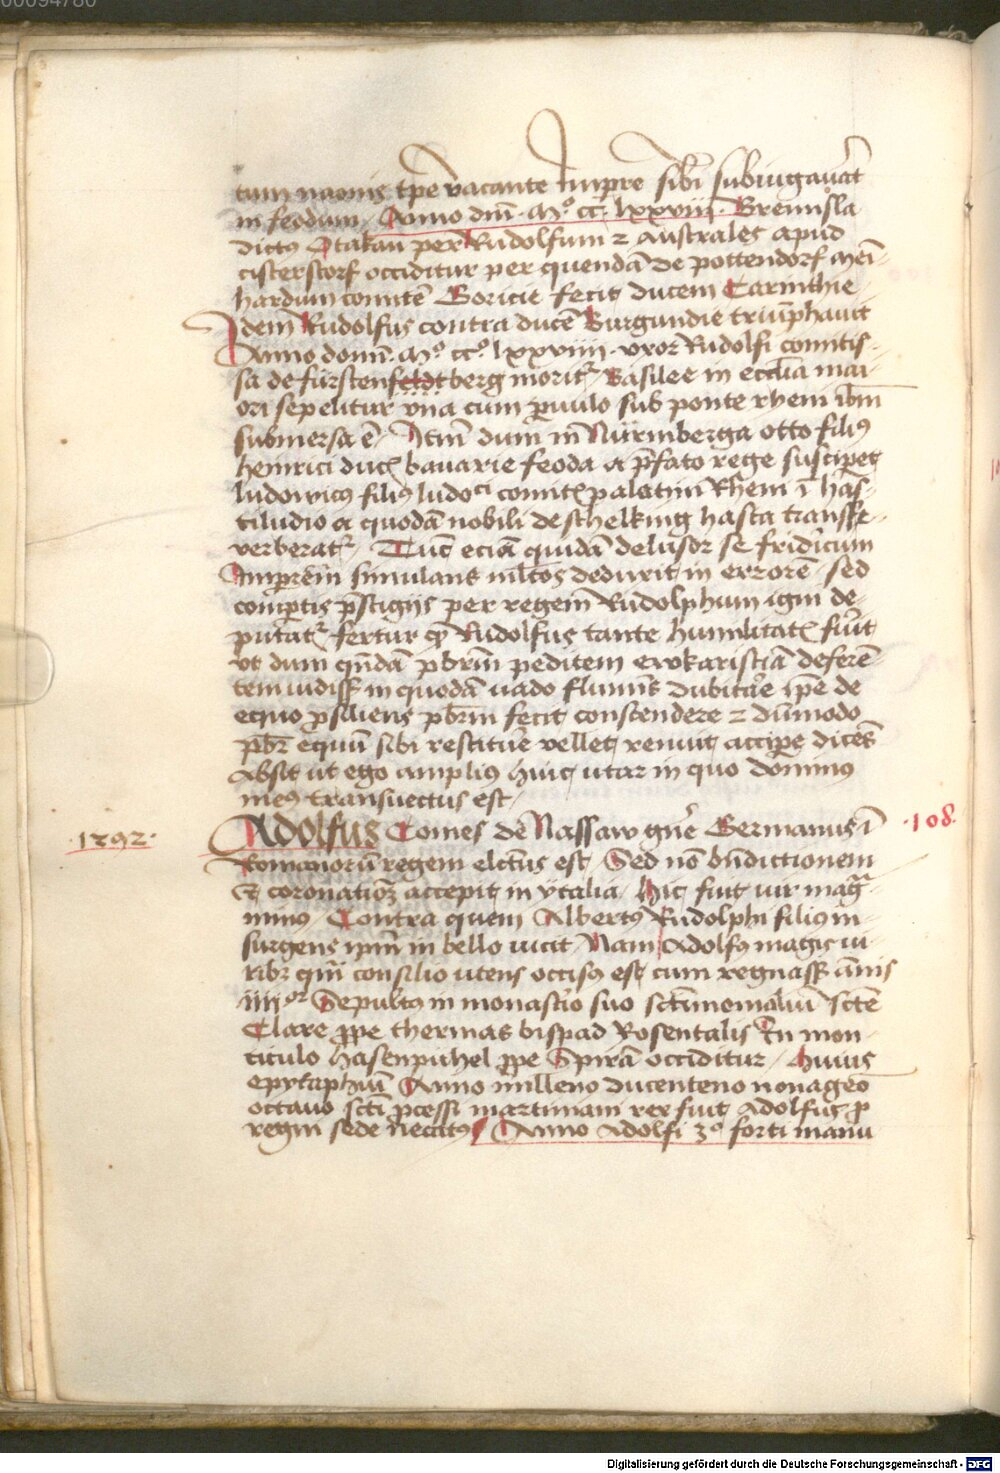 00094780
tum naonis tpe vacante Impre sibi subiugav̄at
in feodum Anno dm̄ Mº ccº lxxviij Brennsla
dictꝯ Otakau per Rudolfum ⁊ australes apud
cisterstorf occiditur per quendā de pottendorf Mei-
hardum comitē Goricie fecit ducem Carinthie
Idem Rudolfus contra ducē Burgundie triūphauit
Anno domī Mº ccº lxxviiij vxor Rudolfi comitis-
sa de fürstenfeldt berg moritr Basilee in ecclīa mai-
ori sepelitur vna cum paruulo sub ponte rheni ibm̄
submersa ē Itm̄ dum in Nürmberga otto filiꝯ
heinrici ducꝭ bavarie feoda a p̄fato rege susciperet
ludowicꝯ filiꝯ ludoci comitꝭ palatini Rheni ī has-
tiludio a quodā nobili de schelking hasta transfe-
verberatr Tūc eciā quidā delusor se fridricum
Imprem̄ simulans ml̄tos deduxit in errorē sed
compertis p̄stigijs per regem Rudolphum igni de-
putatr fertur qꝫ Rudolfus tante humilitatꝭ fuit
vt dum qn̄dā pbrm̄ peditem evkaristiā deferē-
tem uidissꝫ in quodā uado fluminis dubitare ipe de
equo psiliens pbrm̄ fecit conscendere ⁊ dūmodo
pbr̄ equū sibi restituere vellet renuit accipere dicēs
Absit ut ego amplius huic utar in quo dominus
meus transuectus est
1292
Adolfus Comes de Nassaw gn̄e Germanus ī
108
Romanorū regem electus est Sed nō bn̄dictionem
et coronationē accepit in ytalia Hic fuit uir mag-
nimus Contra quem Albertꝯ Rudolphi filius in-
surgens ipm̄ in bello uicit Nam Adolfꝯ magis ui-
ribꝫ qm̄ consilio utens occisꝯ est cum regnassꝫ ānis
iiijor Sepultꝯ in monasterio suo sctimonialiū scte
Clare ꝓpe thermas bispad Rosentalis In mon-
ticulo Hasenpuhel ꝓpe Spirā occiditur Huius
epytaphiū Anno milleno ducenteno nonageo
octavo scti ꝓcessi martiniani rex fuit Adolfus ꝑ
regni sede necatꝯ Anno Adolfi 3º forti manu
Digitalisierung gefördert durch die Deutsche Forschungsgemeinschaft - DFG